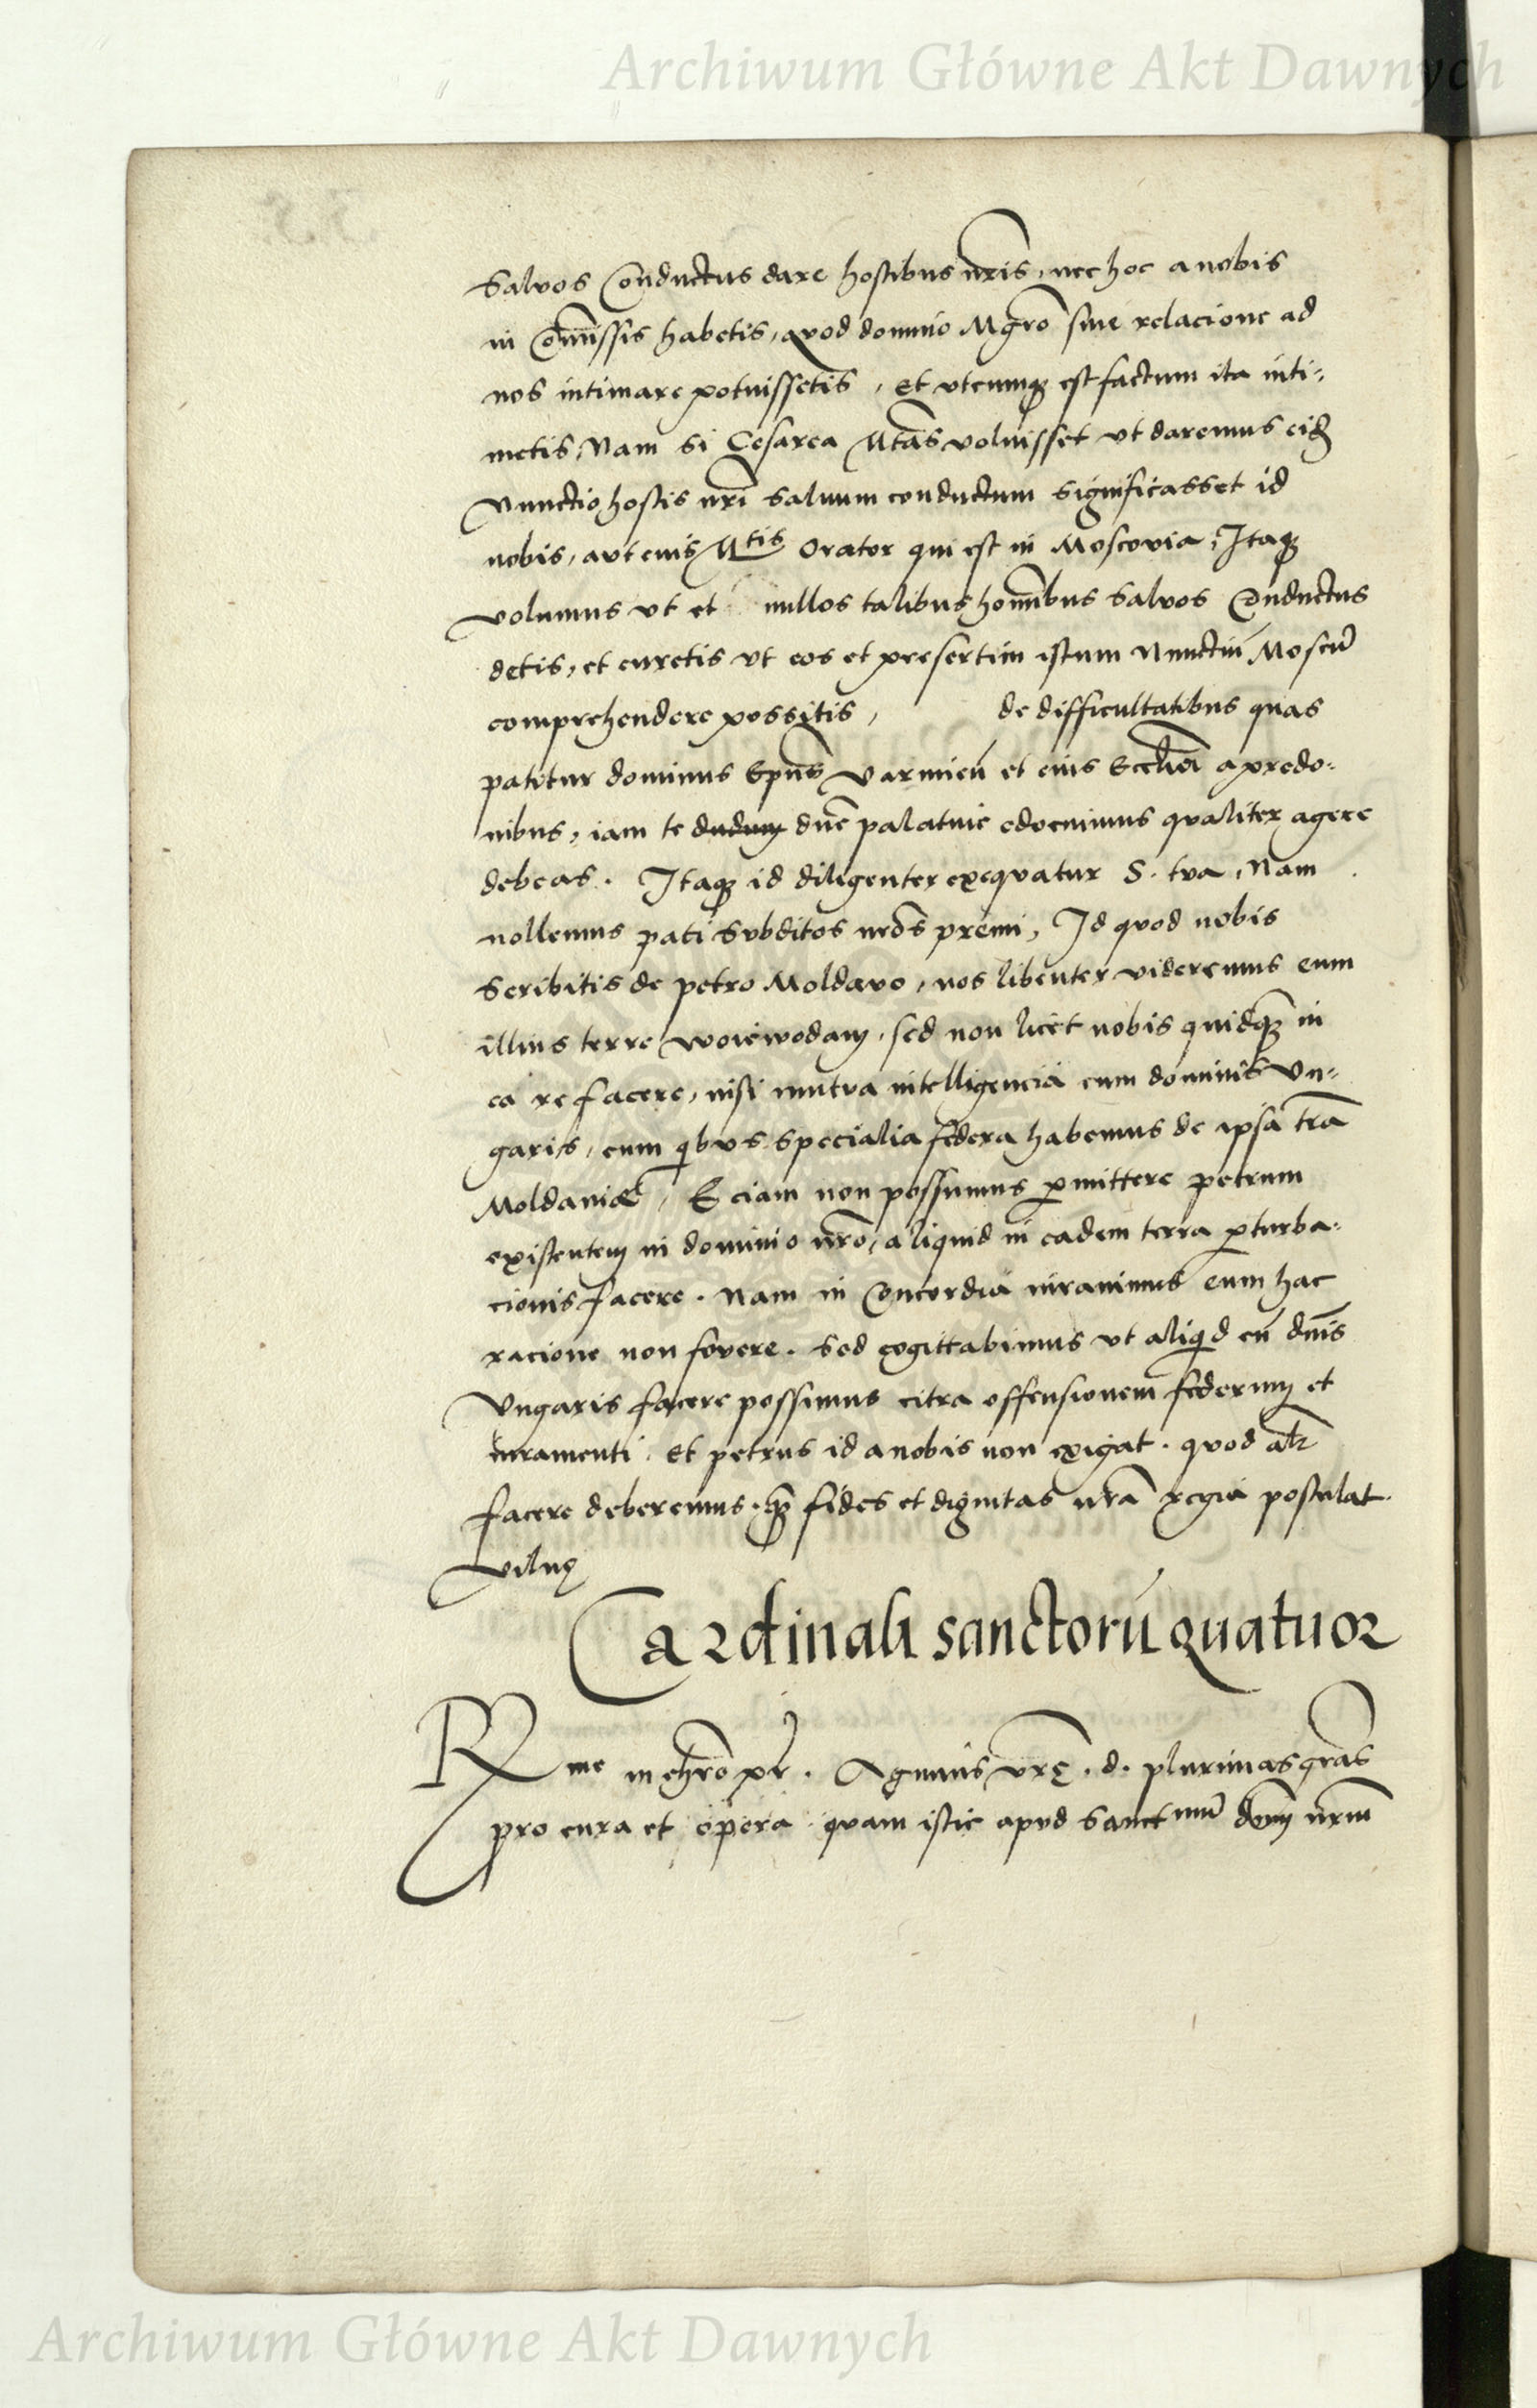 Archiwum Główne Akt Dawnych
Salvos Conductus dare hostibus nr̃is, nec hoc a nobis
in Com̃issis habetis, quod domino Mgr̃o sine relacione ad
nos intimare potuissetis, et utcumq; est factum ita inti=
metis, Nam si Cesarea Mt̃as voluisset ut daremus eid̃
Nunctio hostis nr̃i salvum conductum significasset id
nobis, aut eius Mtis Orator qui est in Moscovia, Itaq;
volumus ut et nullos talibus hom̃ibus Salvos Conductus
detis, et curetis ut eos et presertim istum Nunctiũ Moscũ
comprehendere possitis, de difficultatibus quas
patitur dominus Ep̃us Varmieñ et eius Eccl̃ia a predo=
nibus, iam te dudum dñe palatine edocuimus qualiter agere
debeas. Itaq; id diligenter exequatur S. tua, Nam
nollemus pati Subditos nr̃os premi, Id quod nobis
Scribitis de petro Moldavo, nos libenter videremus eum
illius terre woiewodam, sed non licet nobis quidq̃ in
ea re facere, nisi mutua intelligencia cum dominis Un=
garis, cum qibus specialia federa habemus de ipsa tr̃a
Moldaviæ, Eciam non possumus p̱mittere petrum
existentem in dominio nr̃o, aliquid in eadem terra p̱turba=
cionis facere. Nam in Concordia iuravimus eum hac
racione non fovere. Sed cogittabimus ut aliqid cũ dñis
Ungaris facere possimus citra offensionem federum et
iuramenti. Et petrus id a nobis non exigat. quod alr̃
facere deberemus. q̃ fides et dignitas nr̃a regia postulat.
Vilnę
Cardinali sanctorũ quatuor
Rme in chr̃o pr̃. Agimus vr̃ę. d. plurimas gr̃as
pro cura et opera quam istic apud Sanctmũ dom̃ nr̃m
Archiwum Główne Akt Dawnych